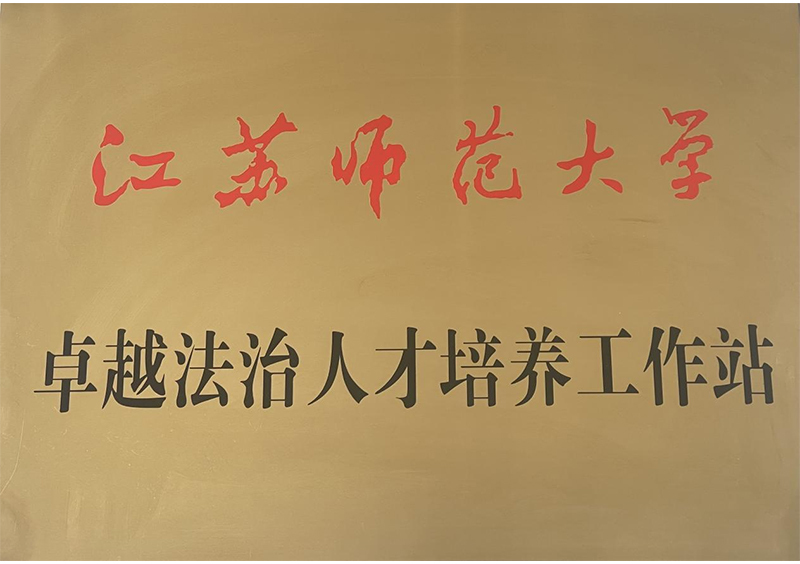 江苏师范大学
卓越法治人才培养工作站